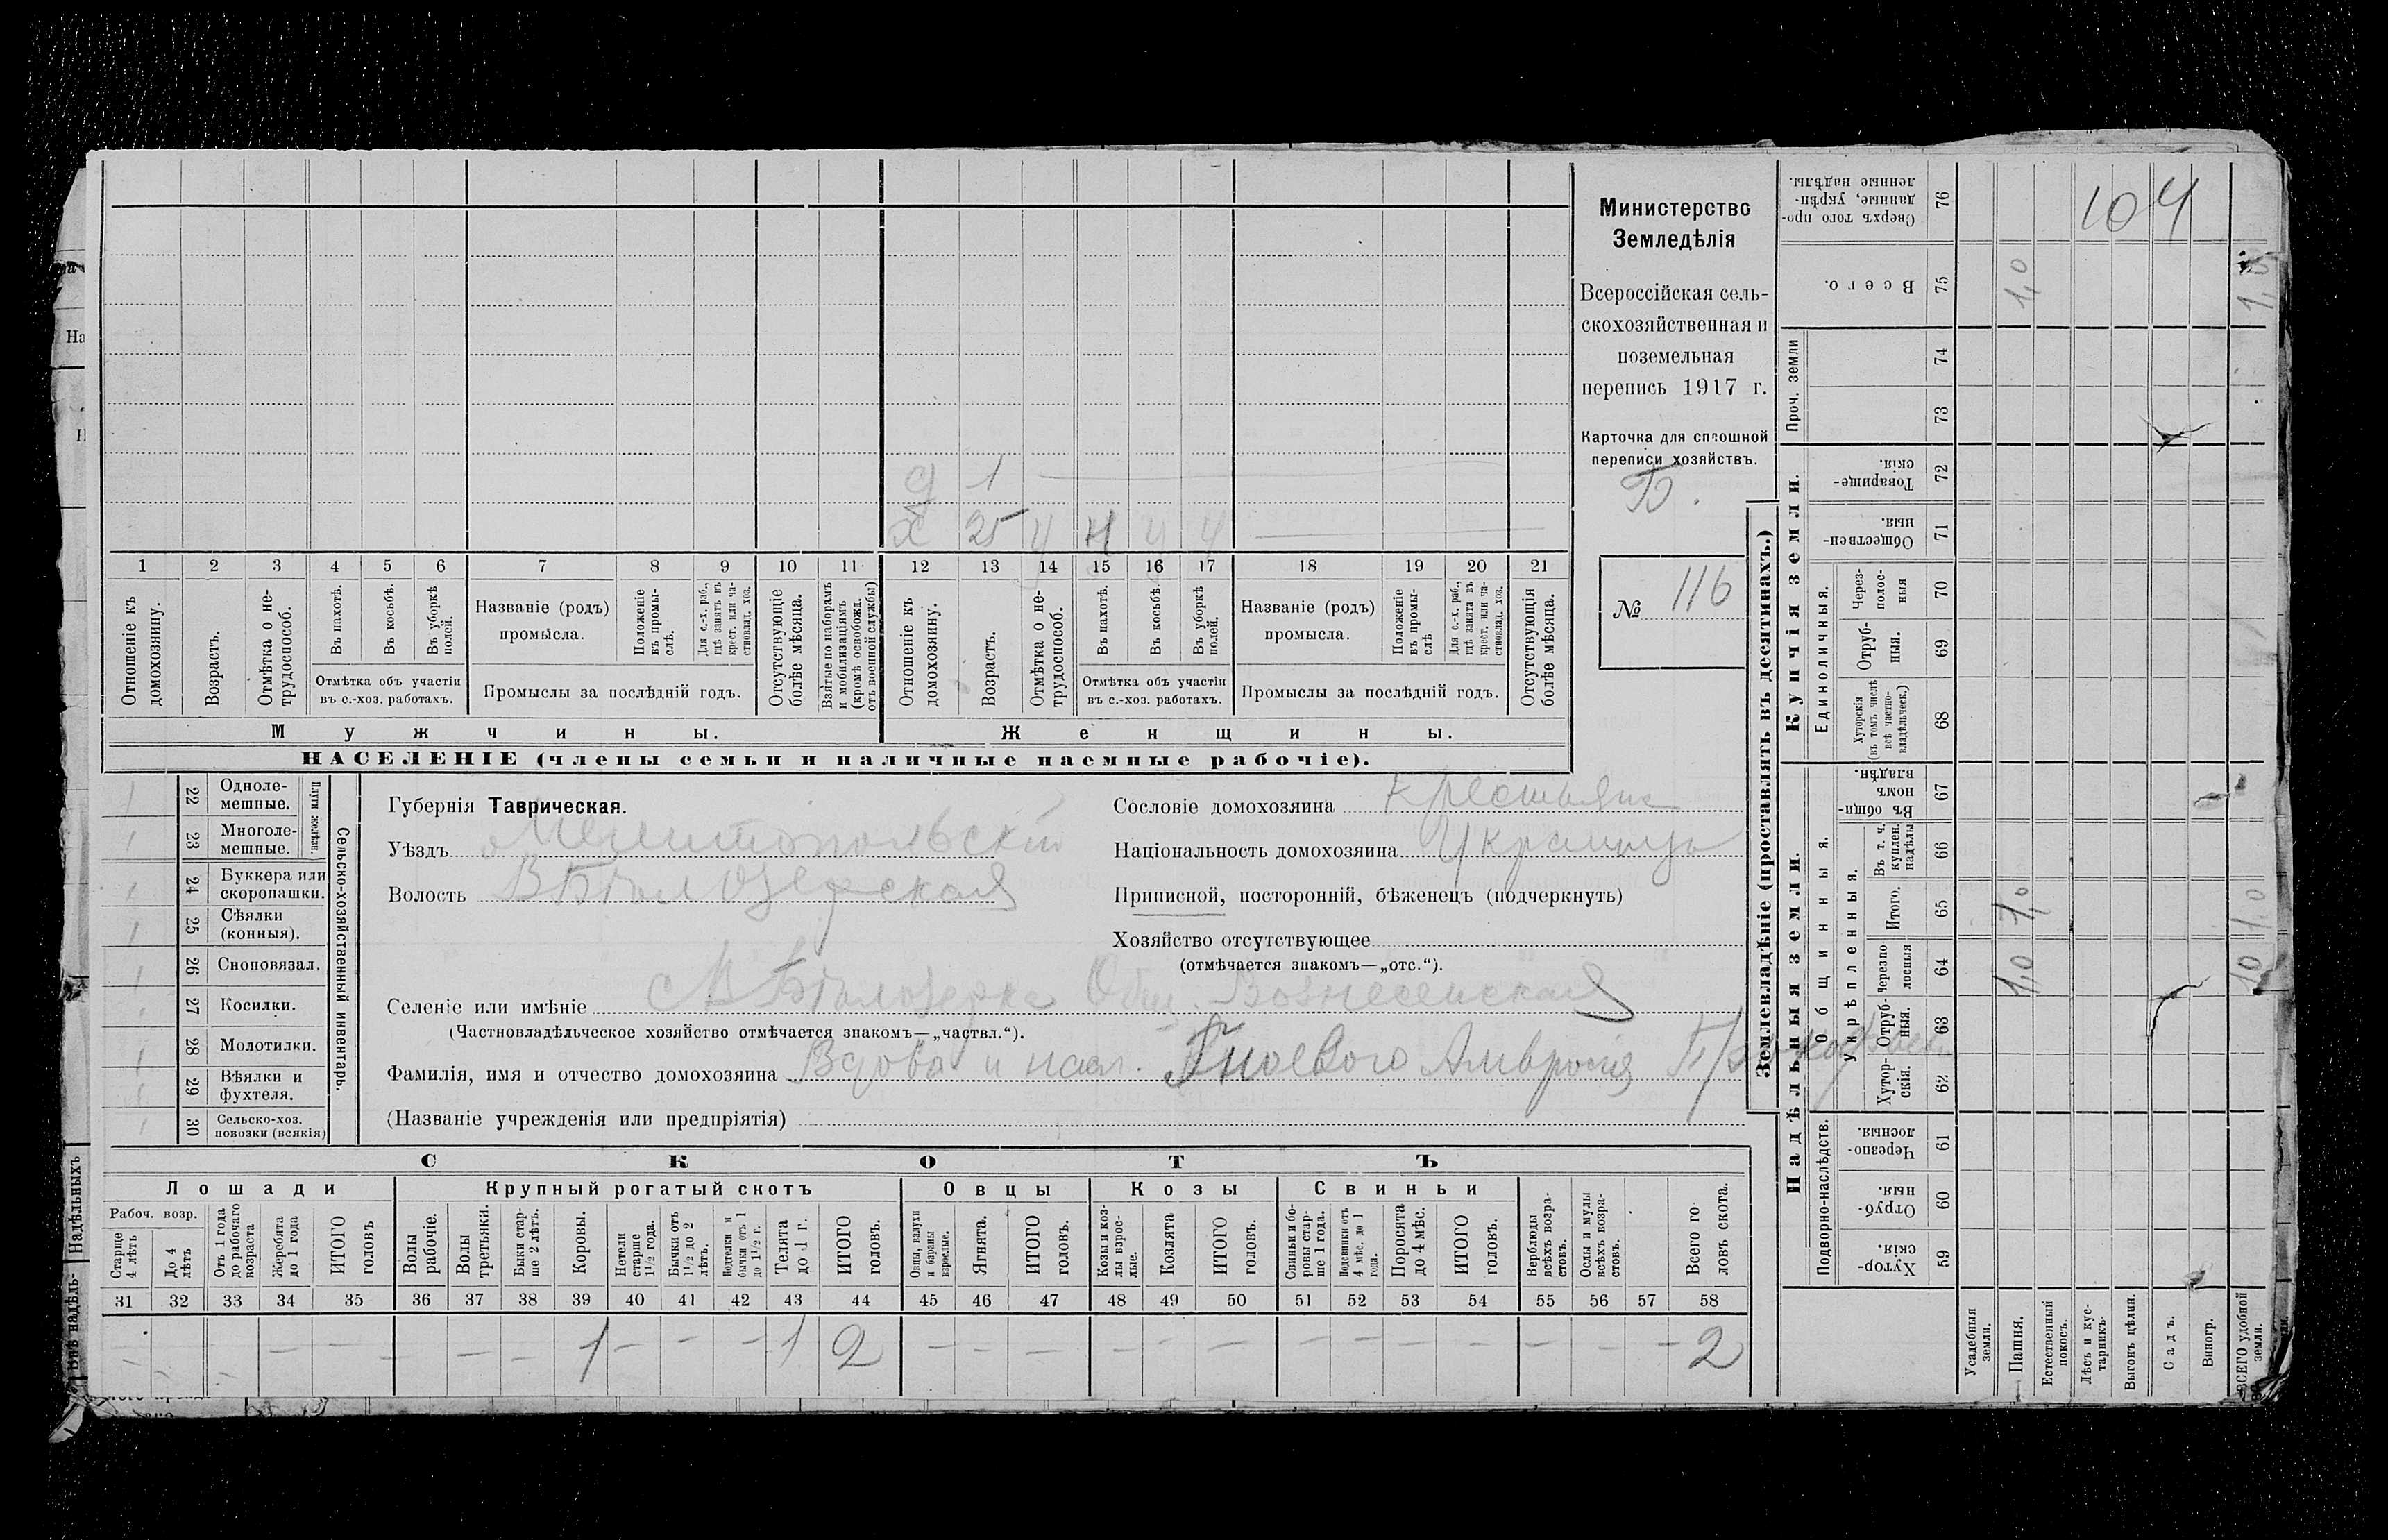 Министерство
Земледѣлія
Всероссійская сель-
скохозяйственная и
поземельная
перепись 1917 г.
Карточка для сплошной
переписи хозяйствъ.
Б.
№ 116
д 1
х 25 у ч у ч
1 2 3 4 5 6 7 8 9 10 11 12 13 14 15 16 17 18 19 20 21
Отношеніе къ домохозяину.
Возрастъ.
Отмѣтка о не-трудоспособ.
Въ пахотѣ.
Въ косьбѣ.
Въ уборкѣ полей.
Отмѣтка объ участіи въ с.-хоз. работахъ.
Названіе (родъ) промысла.
Положеніе въ промы-слѣ.
Для с.-х. раб., гдѣ занятъ въ крест. или ча-стновлад. хоз.
Промыслы за послѣдній годъ.
Отсутствующіе болѣе мѣсяца.
Взятые по наборамъ и мобилизаціямъ (кромѣ освобожд. отъ военной службы)
Отношеніе къ домохозяину.
Возрастъ.
Отмѣтка о не-трудоспособ.
Въ пахотѣ.
Въ косьбѣ.
Въ уборкѣ полей.
Отмѣтка объ участіи въ с.-хоз. работахъ.
Названіе (родъ) промысла.
Положеніе въ промы-слѣ
Для с.-х. раб., гдѣ занята въ крест. или ча-стновлад. хоз.
Промыслы за послѣдній годъ.
Отсутствующія болѣе мѣсяца.
Мужчины.
Женщины.
НАСЕЛЕНІЕ (члены семьи и наличные наемные рабочіе).
22 Одноле-мешные.
23 Многоле-мешные.
Плуги желѣзн.
24 Буккера или скоропашки.
25 Сѣялки (конныя).
26 Сноповязал.
27 Косилки.
28 Молотилки.
29 Вѣялки и фухтеля.
30 Сельско-хоз. повозки (всякія)
Сельско-хозяйственный инвентарь.
Губернія Таврическая.
Уѣздъ Мелитопольскій
Волость В Бѣлозерская
Сословіе домохозяина крестьянс
Національность домохозяина Украинца
Приписной, посторонній, бѣженецъ (подчеркнуть)
Хозяйство отсутствующее
(отмѣчается знакомъ—„отс.“).
Селеніе или имѣніе с В Бѣлозерка Общ. Вознесенская
(Частновладѣльческое хозяйство отмѣчается знакомъ—„частвл.“).
Фамилія, имя и отчество домохозяина Вдова и насл. Гноевого Амвросія Прокофьев.
(Названіе учрежденія или предпріятія)
СКОТЪ
Лошади
Крупный рогатый скотъ
Овцы
Козы
Свиньи
Рабоч. возр.
Старше 4 лѣтъ
До 4 лѣтъ
Отъ 1 года до рабочаго возраста
Жеребята до 1 года
ИТОГО головъ
Волы рабочіе.
Волы третьяки.
Быки стар-ше 2 лѣтъ.
Коровы.
Нетели старше 1½ года.
Бычки отъ 1½ до 2 лѣтъ.
Подтелки и бычки отъ 1 до 1½ г.
Телята до 1 г.
ИТОГО головъ.
Овцы, валухи и бараны взрослые.
Ягнята.
ИТОГО головъ.
Козы и коз-лы взрос-лые.
Козлята
ИТОГО головъ.
Свиньи и бо-ровы стар-ше 1 года.
Подсвинки отъ 4 мѣс. до 1 года.
Поросята до 4 мѣс.
ИТОГО головъ.
Верблюды всѣхъ возра-стовъ.
Ослы и мулы всѣхъ возра-стовъ.
Всего го-ловъ скота.
31 32 33 34 35 36 37 38 39 40 41 42 43 44 45 46 47 48 49 50 51 52 53 54 55 56 57 58
1 1 2 2
Землевладѣніе (проставлять въ десятинахъ.)
104
Сверхъ того про-данные, укрѣп-ленные надѣлы. 76
Всего. 75
1,0
1,0
Проч. земли
74
73
Купчія земли.
Товарище-скія. 72
Обществен-ныя. 71
Единоличныя.
Через-полос-ныя 70
Отруб-ныя. 69
Хуторскія (въ томъ числѣ всѣ частно-владѣльческ.) 68
Надѣльныя земли.
Общинныя.
Въ общи-номъ владѣн. 67
Укрѣпленныя.
Въ т. ч. куплен. надѣлы 66
Итого. 65
1,0
1,0
Черезпо лосныя 64
1,0
10
Отруб-ныя. 63
Хутор-скія. 62
Подворно-наслѣдств.
Черезпо-лосныя. 61
Отруб-ныя. 60
Хутор-скія. 59
Усадебныя земли.
Пашня.
Естественный покосъ.
Лѣсъ и кус-тарникъ.
Выгонъ цѣлин.
Садъ.
Виногр.
ВСЕГО удобной земли.
Надѣльныхъ
Внѣ надѣль-
На